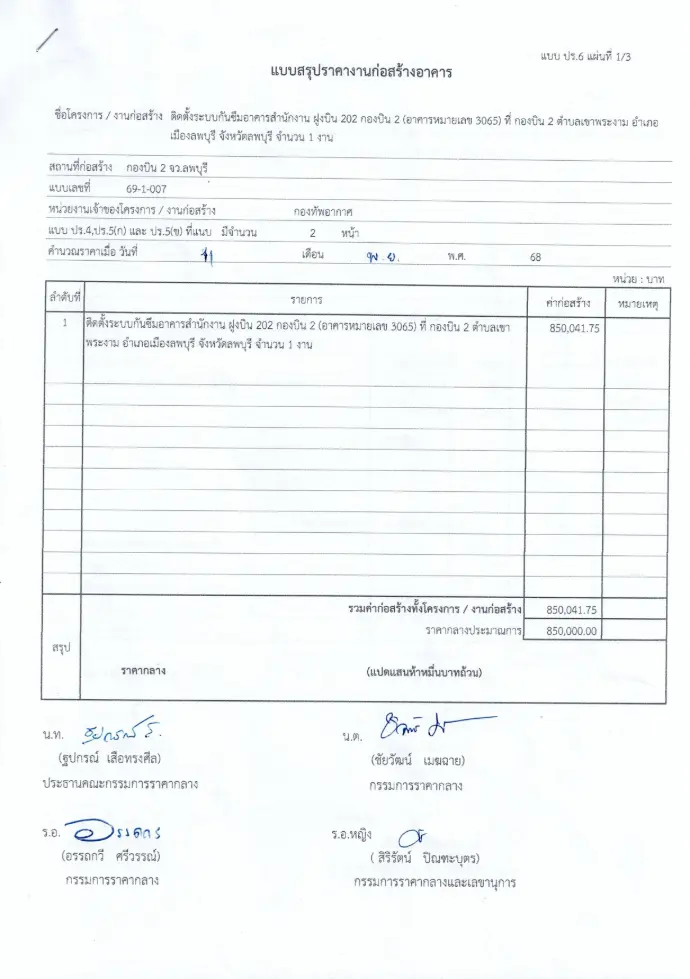 แบบ ปร.6 แผ่นที่ 1/3
แบบสรุปราคางานก่อสร้างอาคาร
ชื่อโครงการ / งานก่อสร้าง ติดตั้งระบบกันซึมอาคารสำนักงาน ฝูงบิน 202 กองบิน 2 (อาคารหมายเลข 3065) ที่ กองบิน 2 ตำบลเขาพระงาม อำเภอ
เมืองลพบุรี จังหวัดลพบุรี จำนวน 1 งาน
สถานที่ก่อสร้าง กองบิน 2 จว.ลพบุรี
แบบเลขที่ 69-1-007
หน่วยงานเจ้าของโครงการ / งานก่อสร้าง กองทัพอากาศ
แบบ ปร.4,ปร.5(ก) และ ปร.5(ข) ที่แนบ มีจำนวน 2 หน้า
คำนวณราคาเมื่อ วันที่ เดือน พ.ย. พ.ศ. 68
หน่วย : บาท
ลำดับที่ รายการ ค่าก่อสร้าง หมายเหตุ
1 ติดตั้งระบบกันซึมอาคารสำนักงาน ฝูงบิน 202 กองบิน 2 (อาคารหมายเลข 3065) ที่ กองบิน 2 ตำบลเขา 850,041.75
พระงาม อำเภอเมืองลพบุรี จังหวัดลพบุรี จำนวน 1 งาน
รวมค่าก่อสร้างทั้งโครงการ / งานก่อสร้าง 850,041.75
ราคากลางประมาณการ 850,000.00
สรุป
ราคากลาง (แปดแสนห้าหมื่นบาทถ้วน)
น.ท. น.ต.
(ฐปกรณ์ เสือทรงศีล) (ชัยวัฒน์ เมฆฉาย)
ประธานคณะกรรมการราคากลาง กรรมการราคากลาง
ร.อ. ร.อ.หญิง
(อรรถกวี ศรีวรรณ์) ( สิริรัตน์ ปิณฑะบุตร)
กรรมการราคากลาง กรรมการราคากลางและเลขานุการ